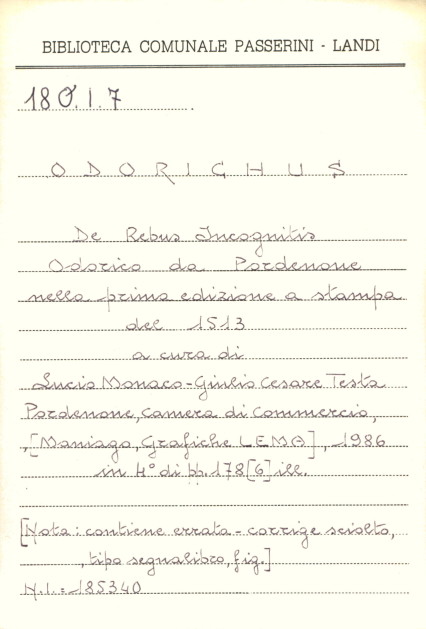 BIBLIOTECA COMUNALE PASSERINI - LANDI
18 Ø.I.7
ODORICHUS
De Rebus Incognitis
Odorico da Pordenone
nella prima edizione a stampa
del 1513
a cura di
Lucio Monaco-Giulio Cesare Testa
Pordenone, Camera di Commercio,
,[Maniago, Grafiche LEMA], 1986
in 4° di pp. 178[6] ill.
[Nota: contiene errata-corrige sciolto,
, tipo segnalibro, fig.]
N.I.: 185340